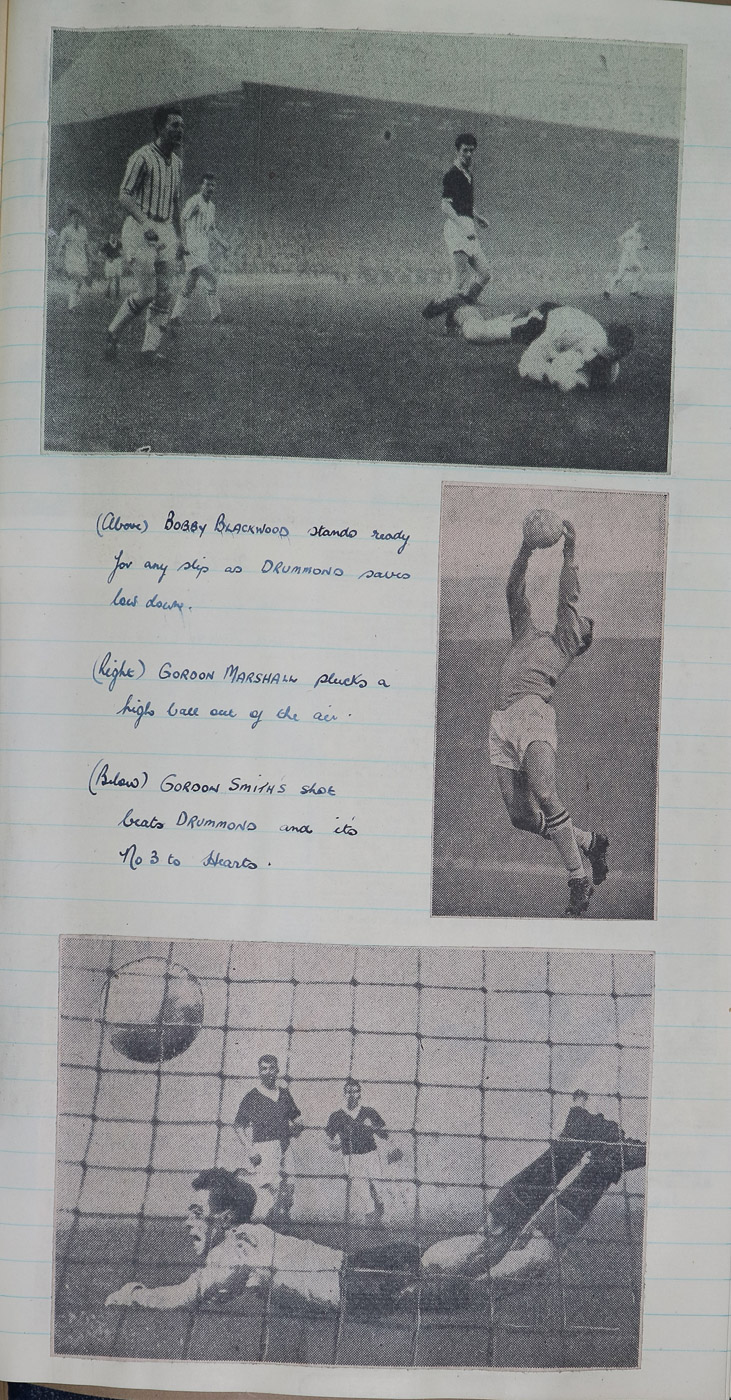 (Above) BOBBY BLACKWOOD stands ready
for any slip as DRUMMOND saves
low down.
(Right) GORDON MARSHALL plucks a
high ball out of the air.
(Below) GORDON SMITH'S shot
beats DRUMMOND and it's
No 3 to Hearts.